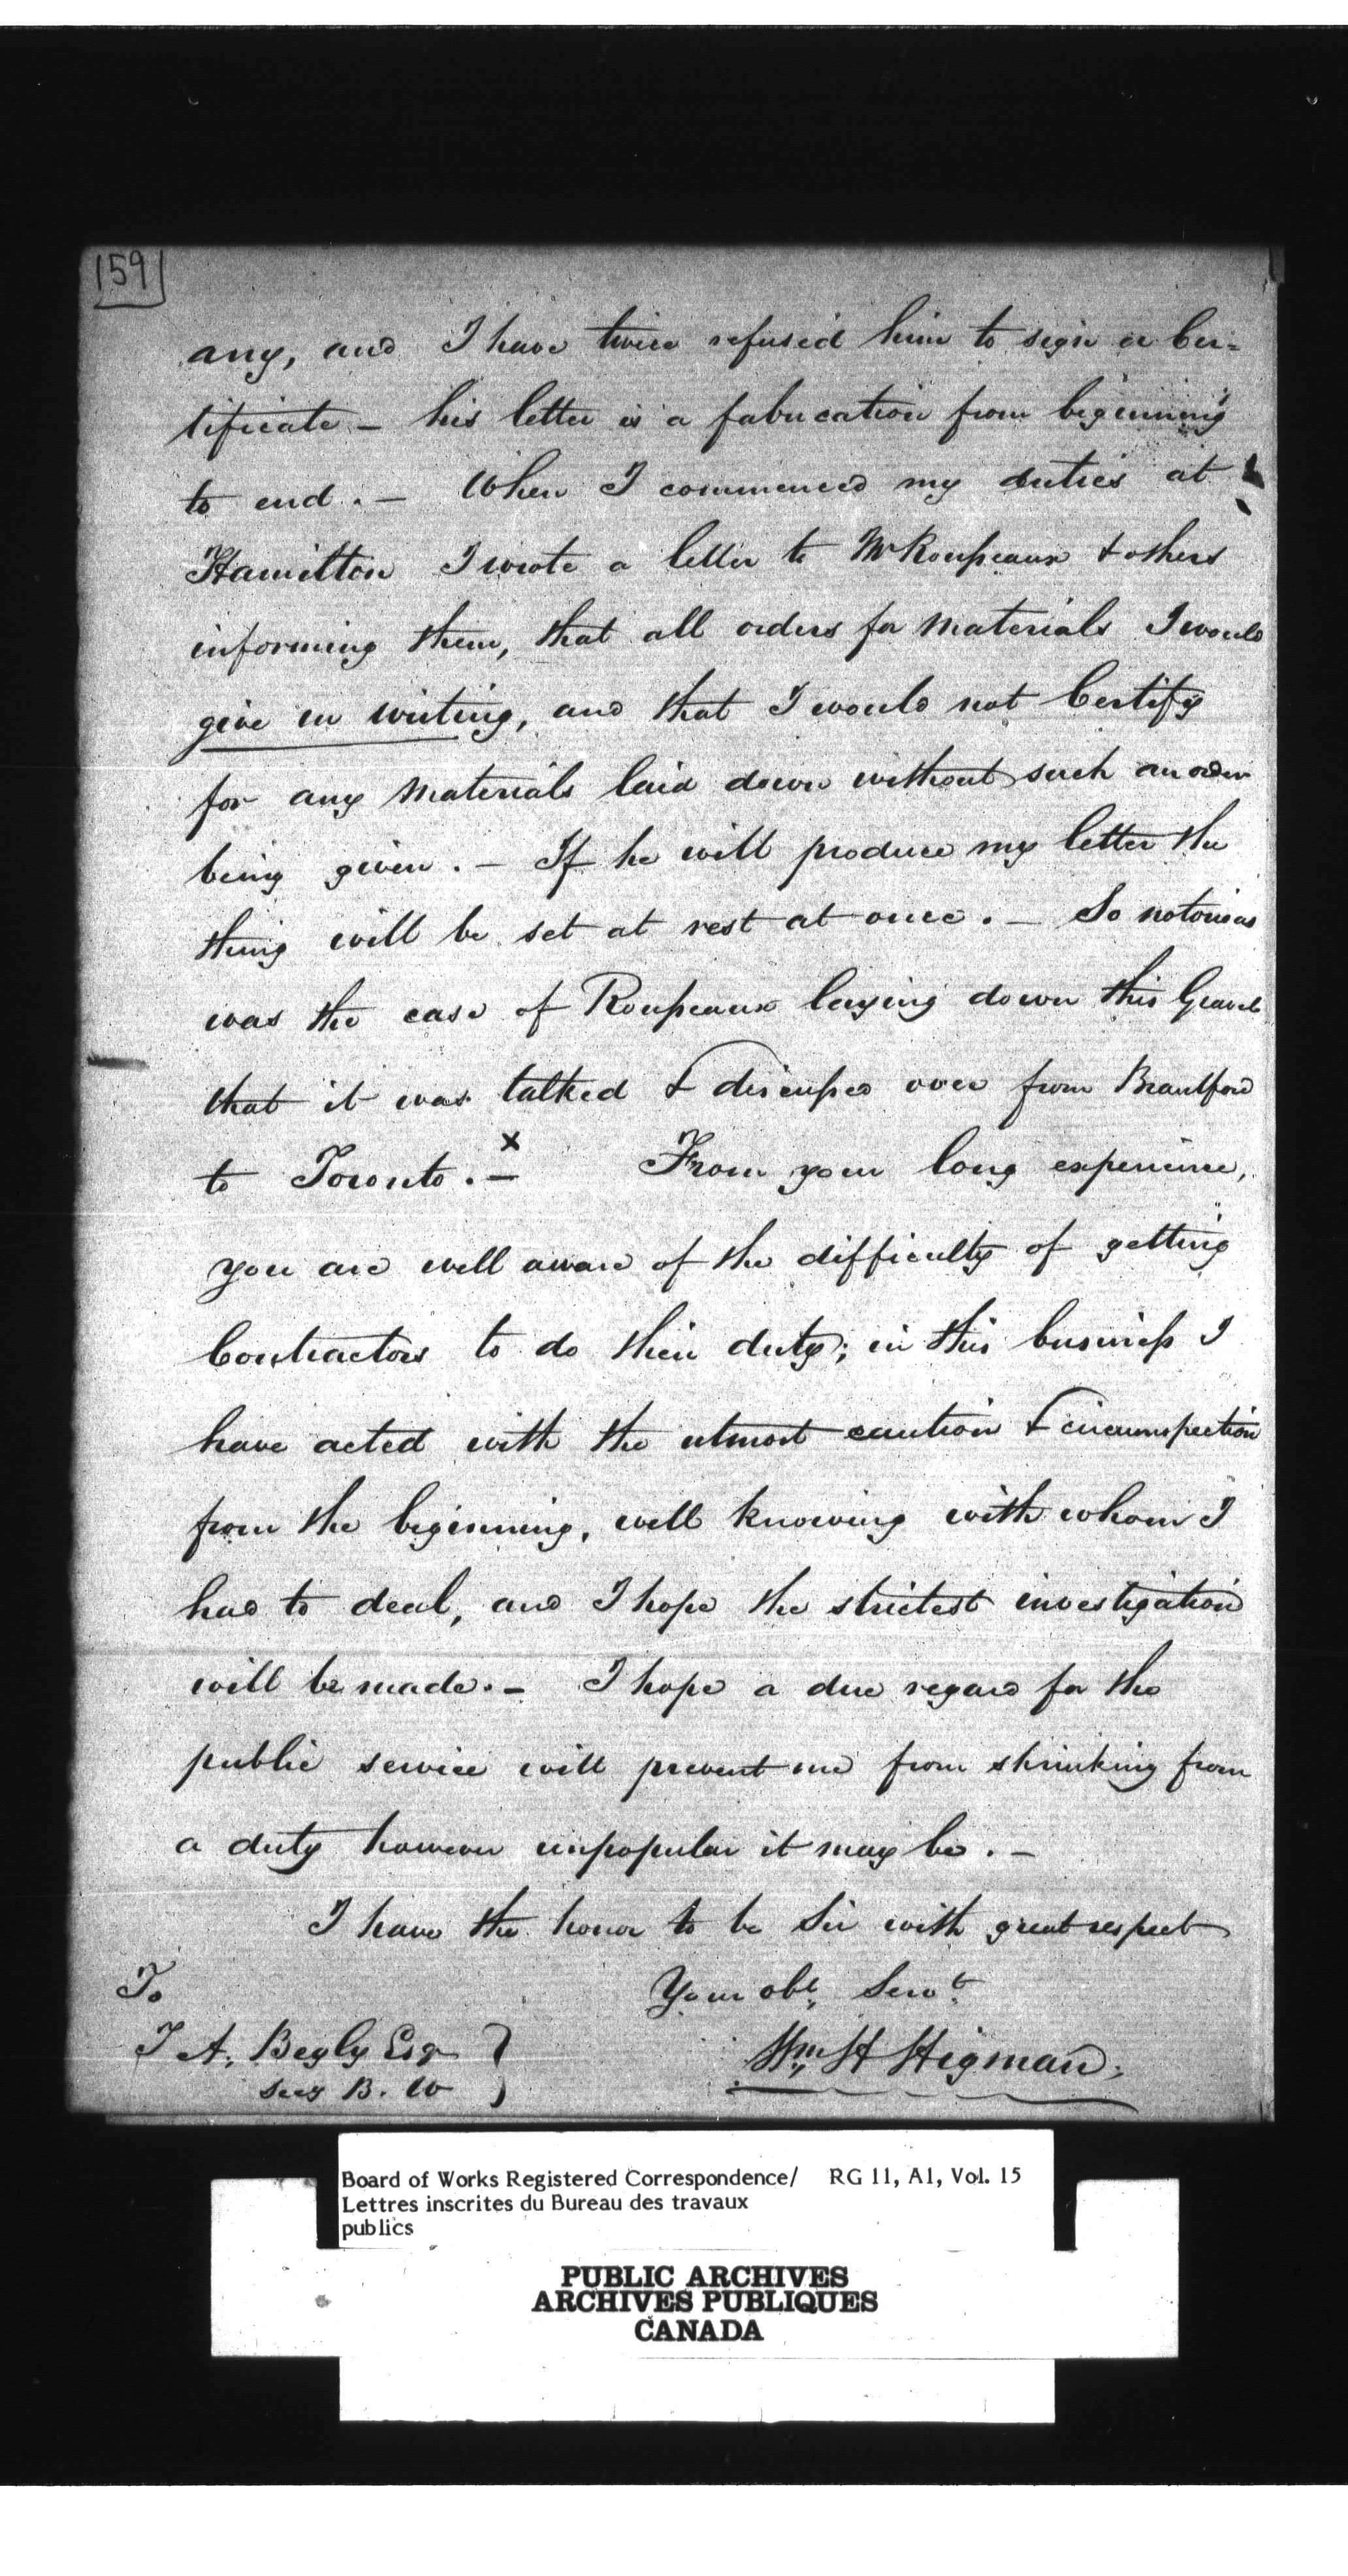 159
any, and I have twice refused him to sign a Cer=
tificate – his letter is a fabrication from beginning
to end. – When I commenced my duties at
Hamilton I wrote a letter to Mr Roupeaux & others
informing them, that all orders for materials I would
give in writing, and that I would not Certify
for any materials laid down without such an order
being given. – If he will produce my letter the
thing will be set at rest at once. – So notorious
was the case of Roupeaux laying down this Gravel
that it was talked & discussed over from Brantford
to Toronto. – x From your long experience,
you are well aware of the difficulty of getting
Contractors to do their duty; in this business I
have acted with the utmost caution & circumspection
from the beginning, well knowing with whom I
had to deal, and I hope the strictest investigation
will be made. – I hope a due regard for the
public service will prevent me from shrinking from
a duty however unpopular it may be. –
I have the honor to be Sir with great respect
To
Your obt. Servt.
T A. Begly Esqr
Wm H Higman.
Secy B. W
Board of Works Registered Correspondence/ RG 11, A1, Vol. 15
Lettres inscrites du Bureau des travaux
publics
PUBLIC ARCHIVES
ARCHIVES PUBLIQUES
CANADA